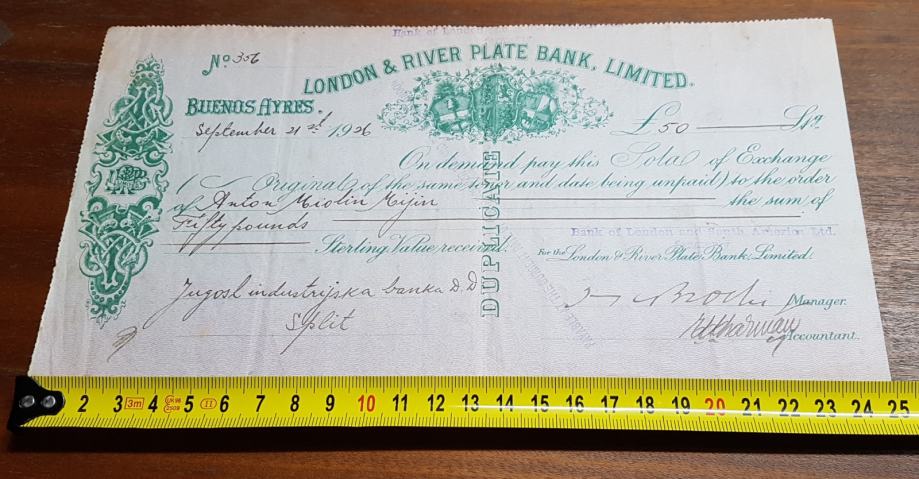 Bank of London
No 356
LONDON & RIVER PLATE BANK, LIMITED.
BUENOS AYRES.
September 21st 1926
£50 Stg
On demand pay this Sola of Exchange
(Original of the same tenor and date being unpaid) to the order
of Anton Miolin Mijin the sum of
Fifty pounds
Bank of London and South America Ltd.
Sterling Value received.
For the London & River Plate Bank, Limited.
DUPLICATE
Jugosl industrijska banka D.D
Split
Manager.
Accountant.
2 3 3m 4 5 II 6 7 8 9 10 11 12 13 14 15 16 17 18 19 20 21 22 23 24 25